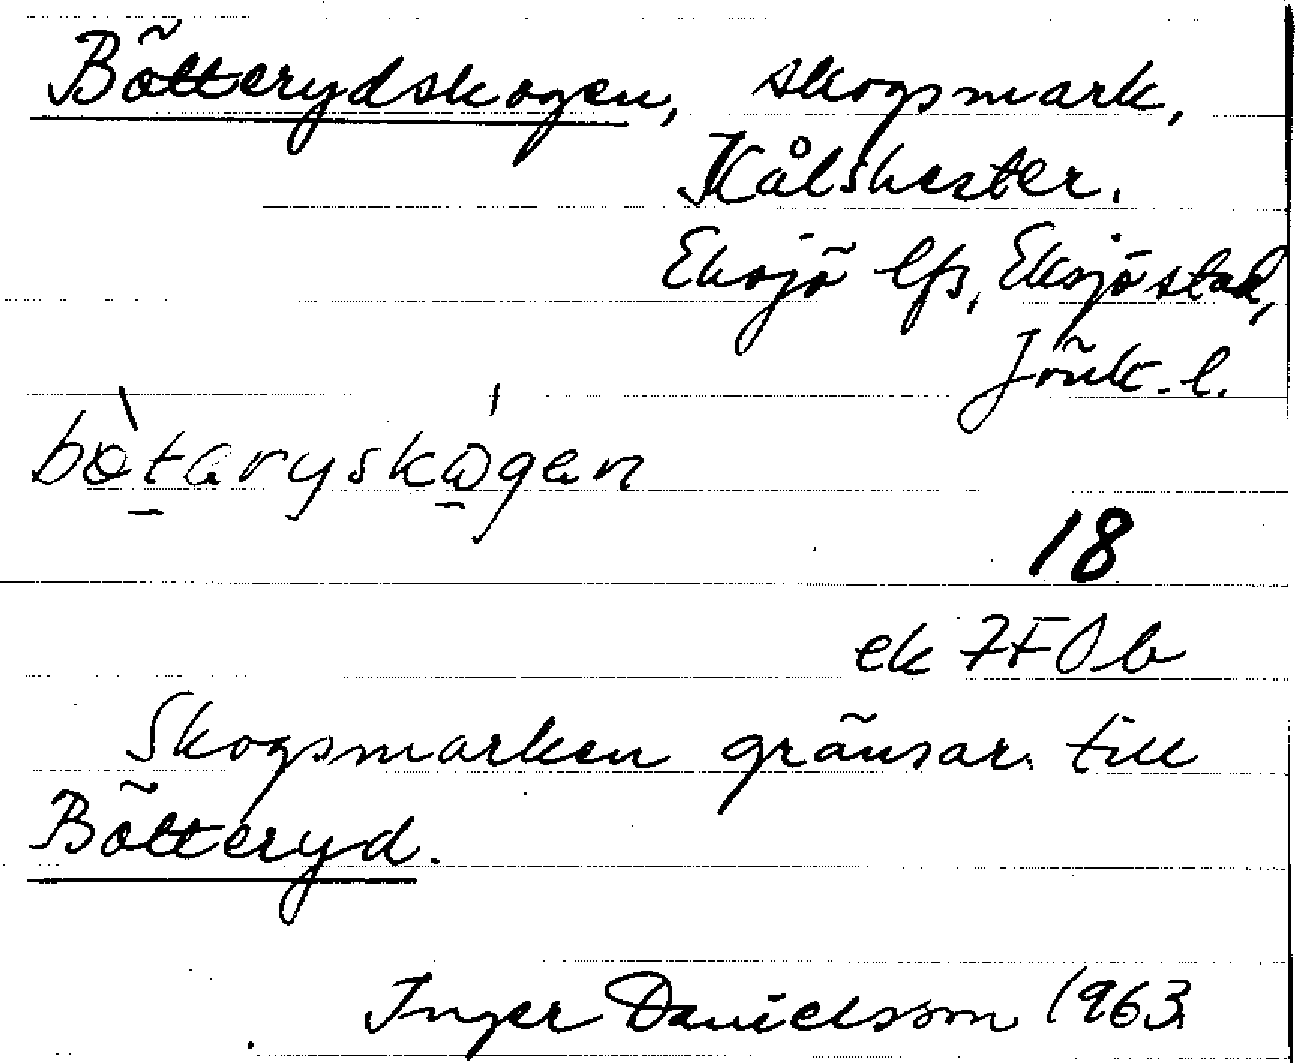 Bötterydskogen, skogsmark,
Kålskester.
Eksjö lfs, Eksjö stad,
Jönk. l.
bø̀taryskógen
18
ek 7F0b
Skogsmarken gränsar till
Bötteryd.
Inger Danielsson 1963